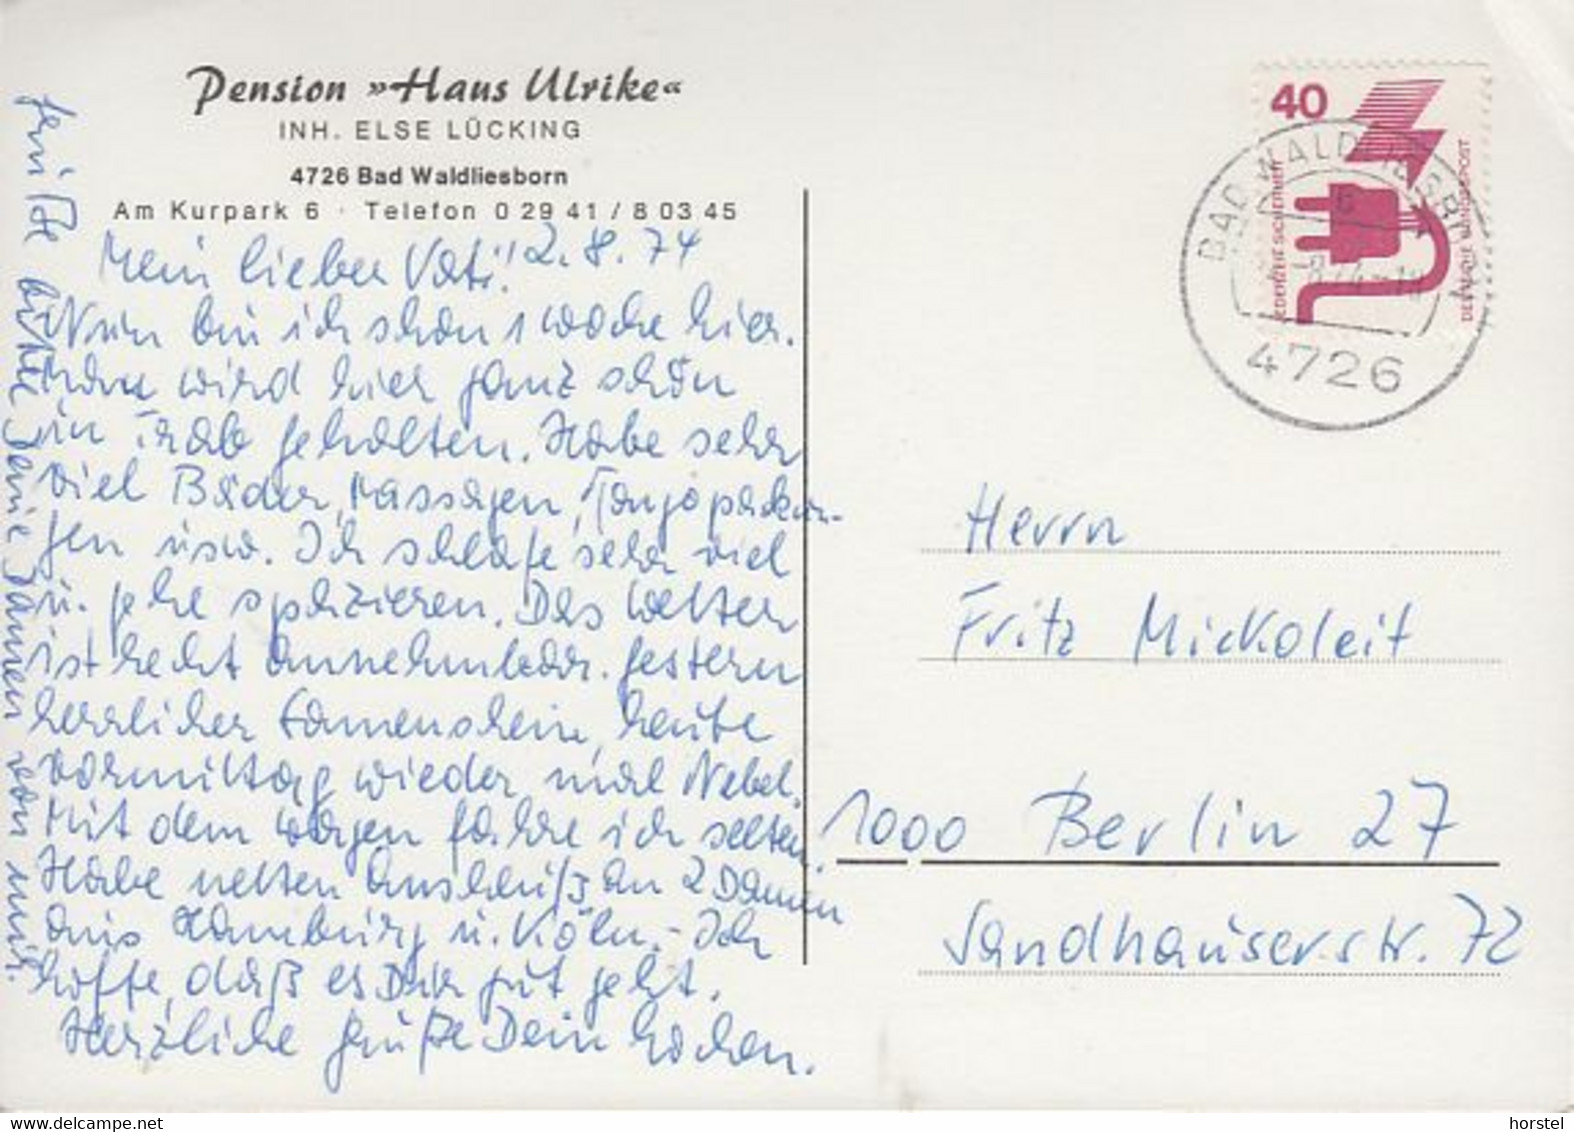 Pension »Haus Ulrike«
INH. ELSE LÜCKING
4726 Bad Waldliesborn
Am Kurpark 6 · Telefon 0 29 41 / 8 03 45
2.8.74
Mein lieber Vati!
Nun bin ich schon 1 Woche hier.
Man wird hier ganz schön
in Trab gehalten. Habe sehr
viel Bäder, Massagen, Fangopackun-
gen usw. Ich schlafe sehr viel
u. gehe spazieren. Das Wetter
ist recht annehmbar. Gestern
herrlicher Sonnenschein, heute
vormittag wieder mal Nebel.
Mit dem Wagen fahre ich selten.
Habe netten Anschluß an 2 Damen
aus Hamburg u. Köln. - Ich
hoffe, daß es Dir gut geht.
Herzliche Grüße Dein
Grüße bitte Deine Damen von mir.
40
JEDERZEIT SICHERHEIT
DEUTSCHE BUNDESPOST
BAD WALDLIESBORN
4726
Herrn
Fritz Mickoleit
1000 Berlin 27
Sandhauserstr. 72
horstel